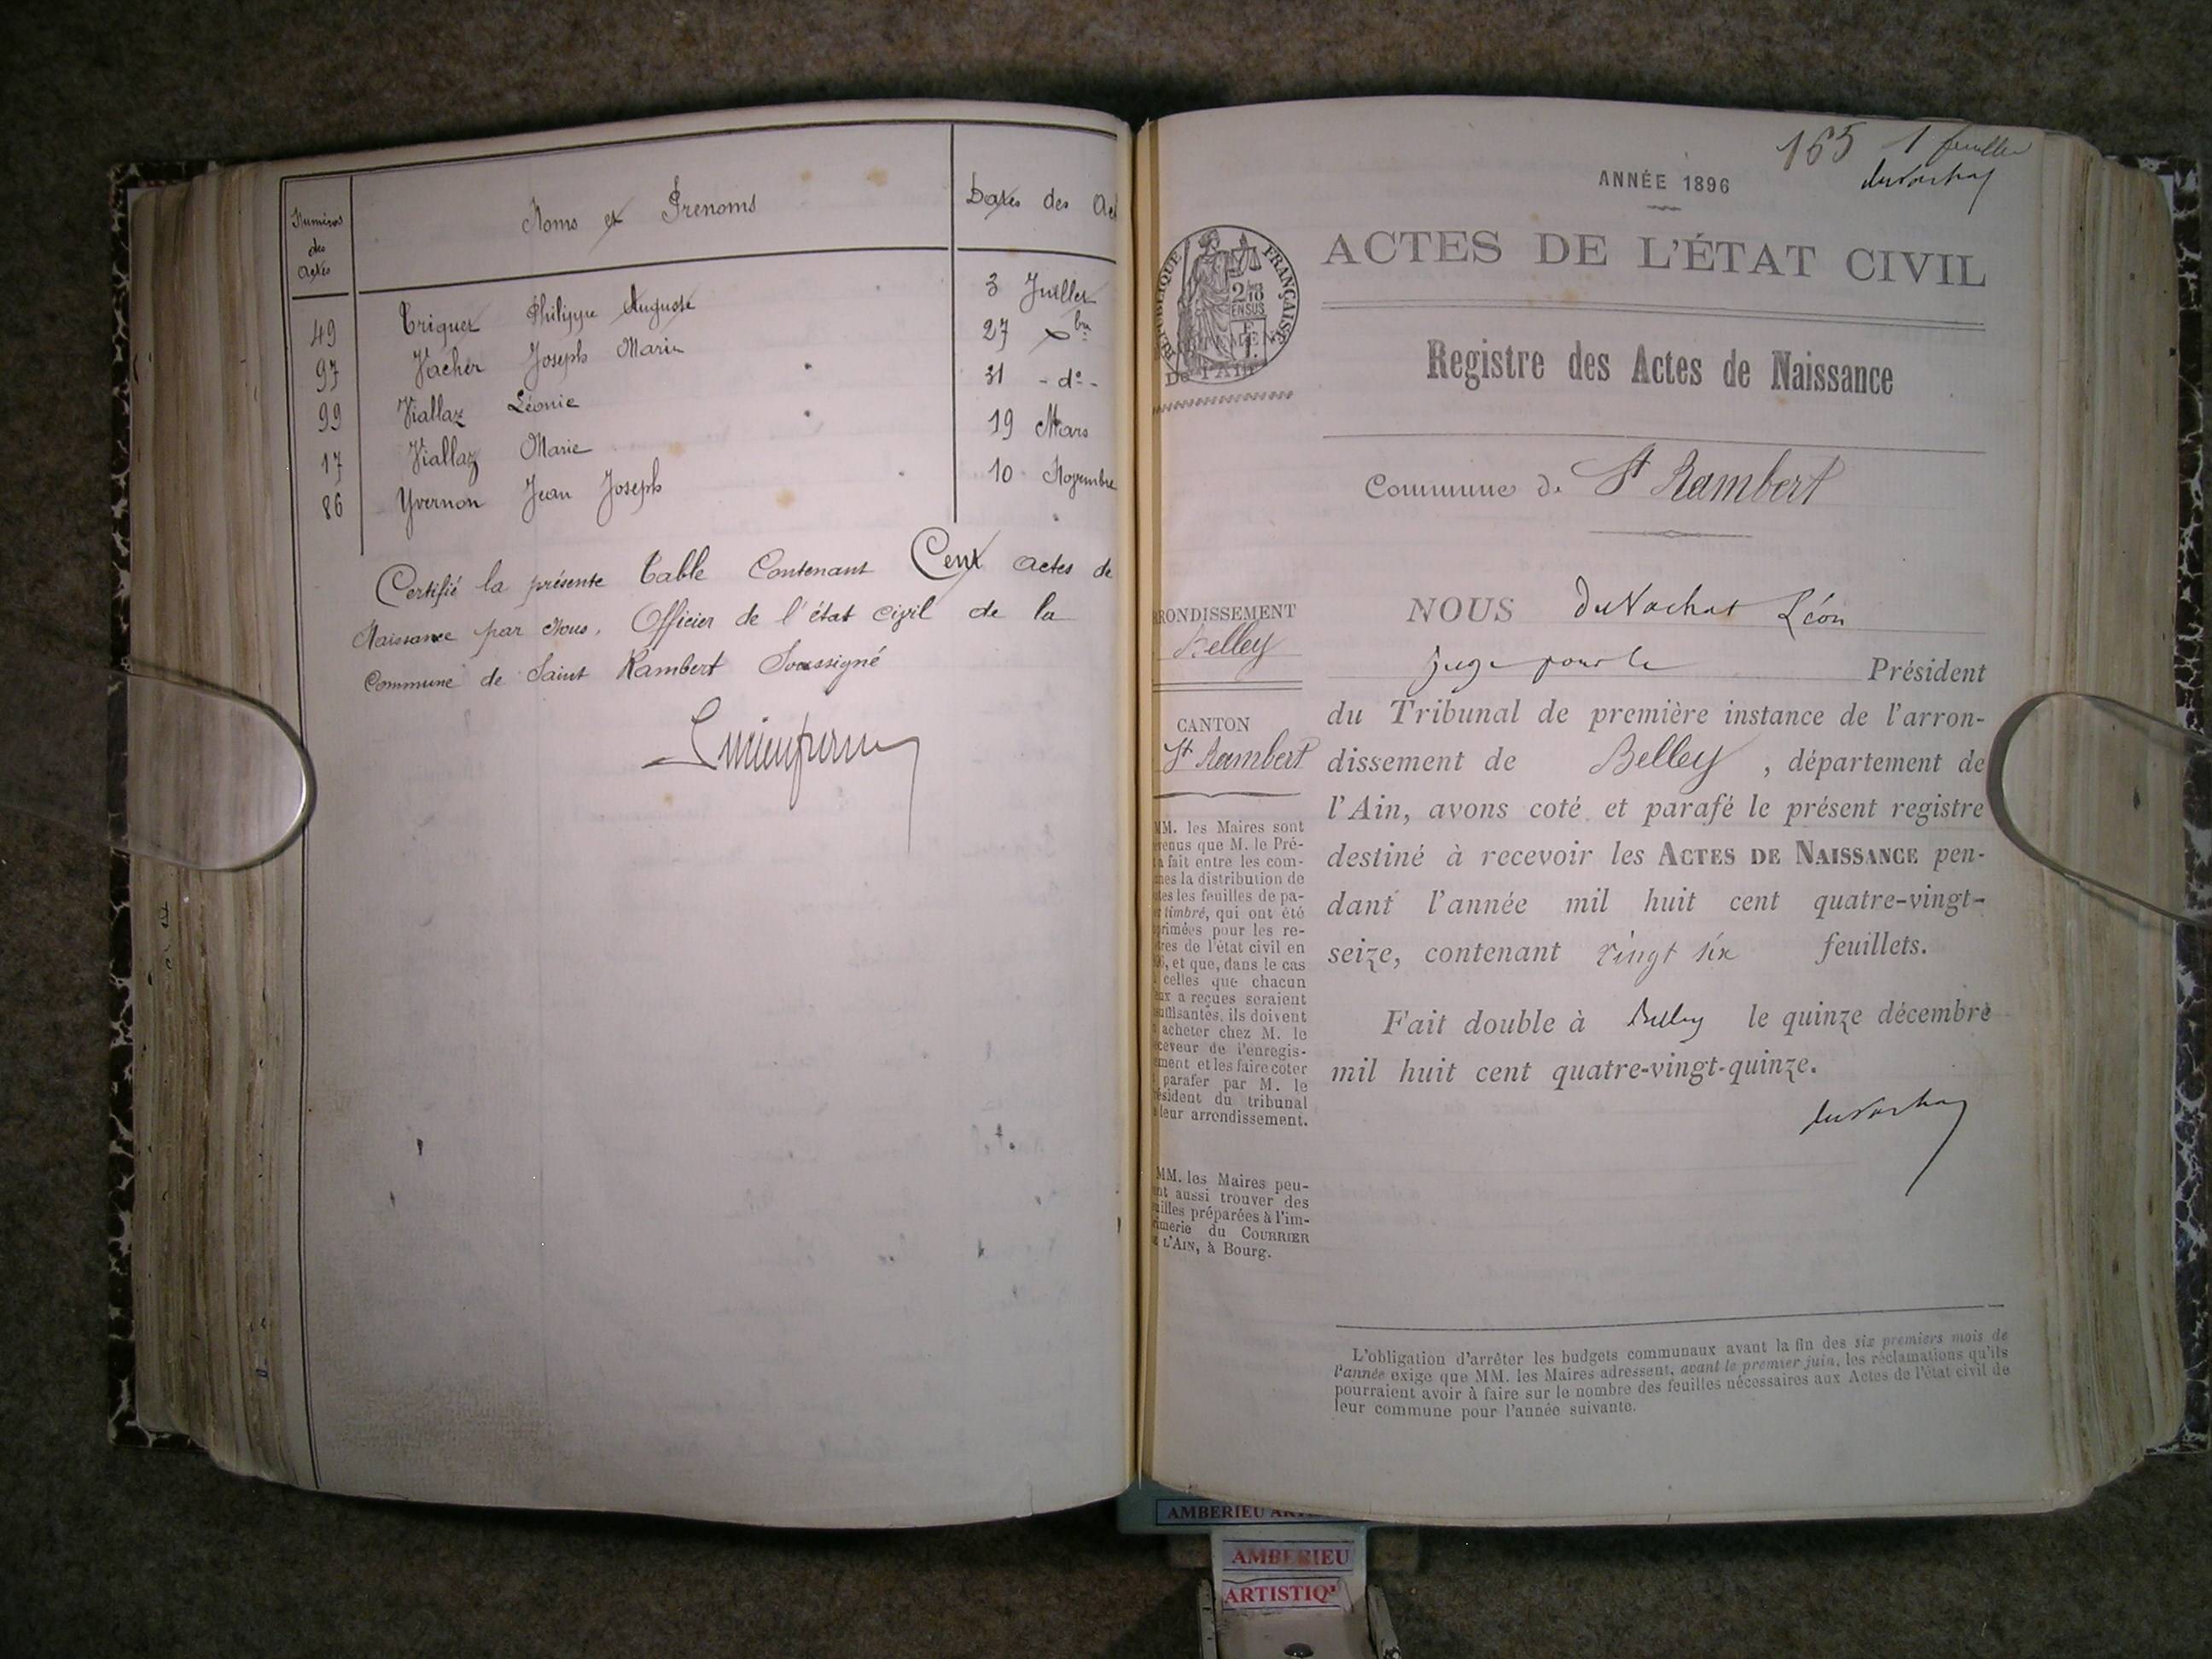 Numéros
des
Actes
Noms et Prenoms
Dates des Ac
49 Triquet Philippe Auguste 3 Juillet
97 Vacher Joseph Marie 27 Xbre
99 Viallaz Léonie 31 - do -
17 Viallaz Marie 19 Mars
86 Yvernon Jean Joseph 10 Novembre
Certifié la présente Table Contenant Cent actes de
Naissance par Nous, Officier de l'état civil de la
Commune de Saint Rambert Soussigné
165 1 feuillet
duVachat
ANNÉE 1896
ACTES DE L'ÉTAT CIVIL
RÉPUBLIQUE FRANÇAISE
De l'Ain
Registre des Actes de Naissance
Commune de St Rambert
RRONDISSEMENT
Belley
CANTON
St Rambert
MM. les Maires sont
venus que M. le Pré-
a fait entre les com-
nes la distribution de
tes les feuilles de pa-
r timbré, qui ont été
primées pour les re-
tres de l'état civil en
96, et que, dans le cas
celles que chacun
eux a reçues seraient
suffisantes, ils doivent
acheter chez M. le
eceveur de l'enregis-
ement et les faire coter
parafer par M. le
résident du tribunal
leur arrondissement.
MM. les Maires peu-
nt aussi trouver des
uilles préparées à l'im-
rimerie du COURRIER
DE L'AIN, à Bourg.
NOUS duVachat Léon
juge pour le Président
du Tribunal de première instance de l'arron-
dissement de Belley, département de
l'Ain, avons coté et parafé le présent registre
destiné à recevoir les ACTES DE NAISSANCE pen-
dant l'année mil huit cent quatre-vingt-
seize, contenant vingt six feuillets.
Fait double à Belley le quinze décembre
mil huit cent quatre-vingt-quinze.
duVachat
L'obligation d'arrêter les budgets communaux avant la fin des six premiers mois de
l'année exige que MM. les Maires adressent, avant le premier juin, les réclamations qu'ils
pourraient avoir à faire sur le nombre des feuilles nécessaires aux Actes de l'état civil de
leur commune pour l'année suivante.
AMBERIEU
AMBERIEU
ARTISTIQ